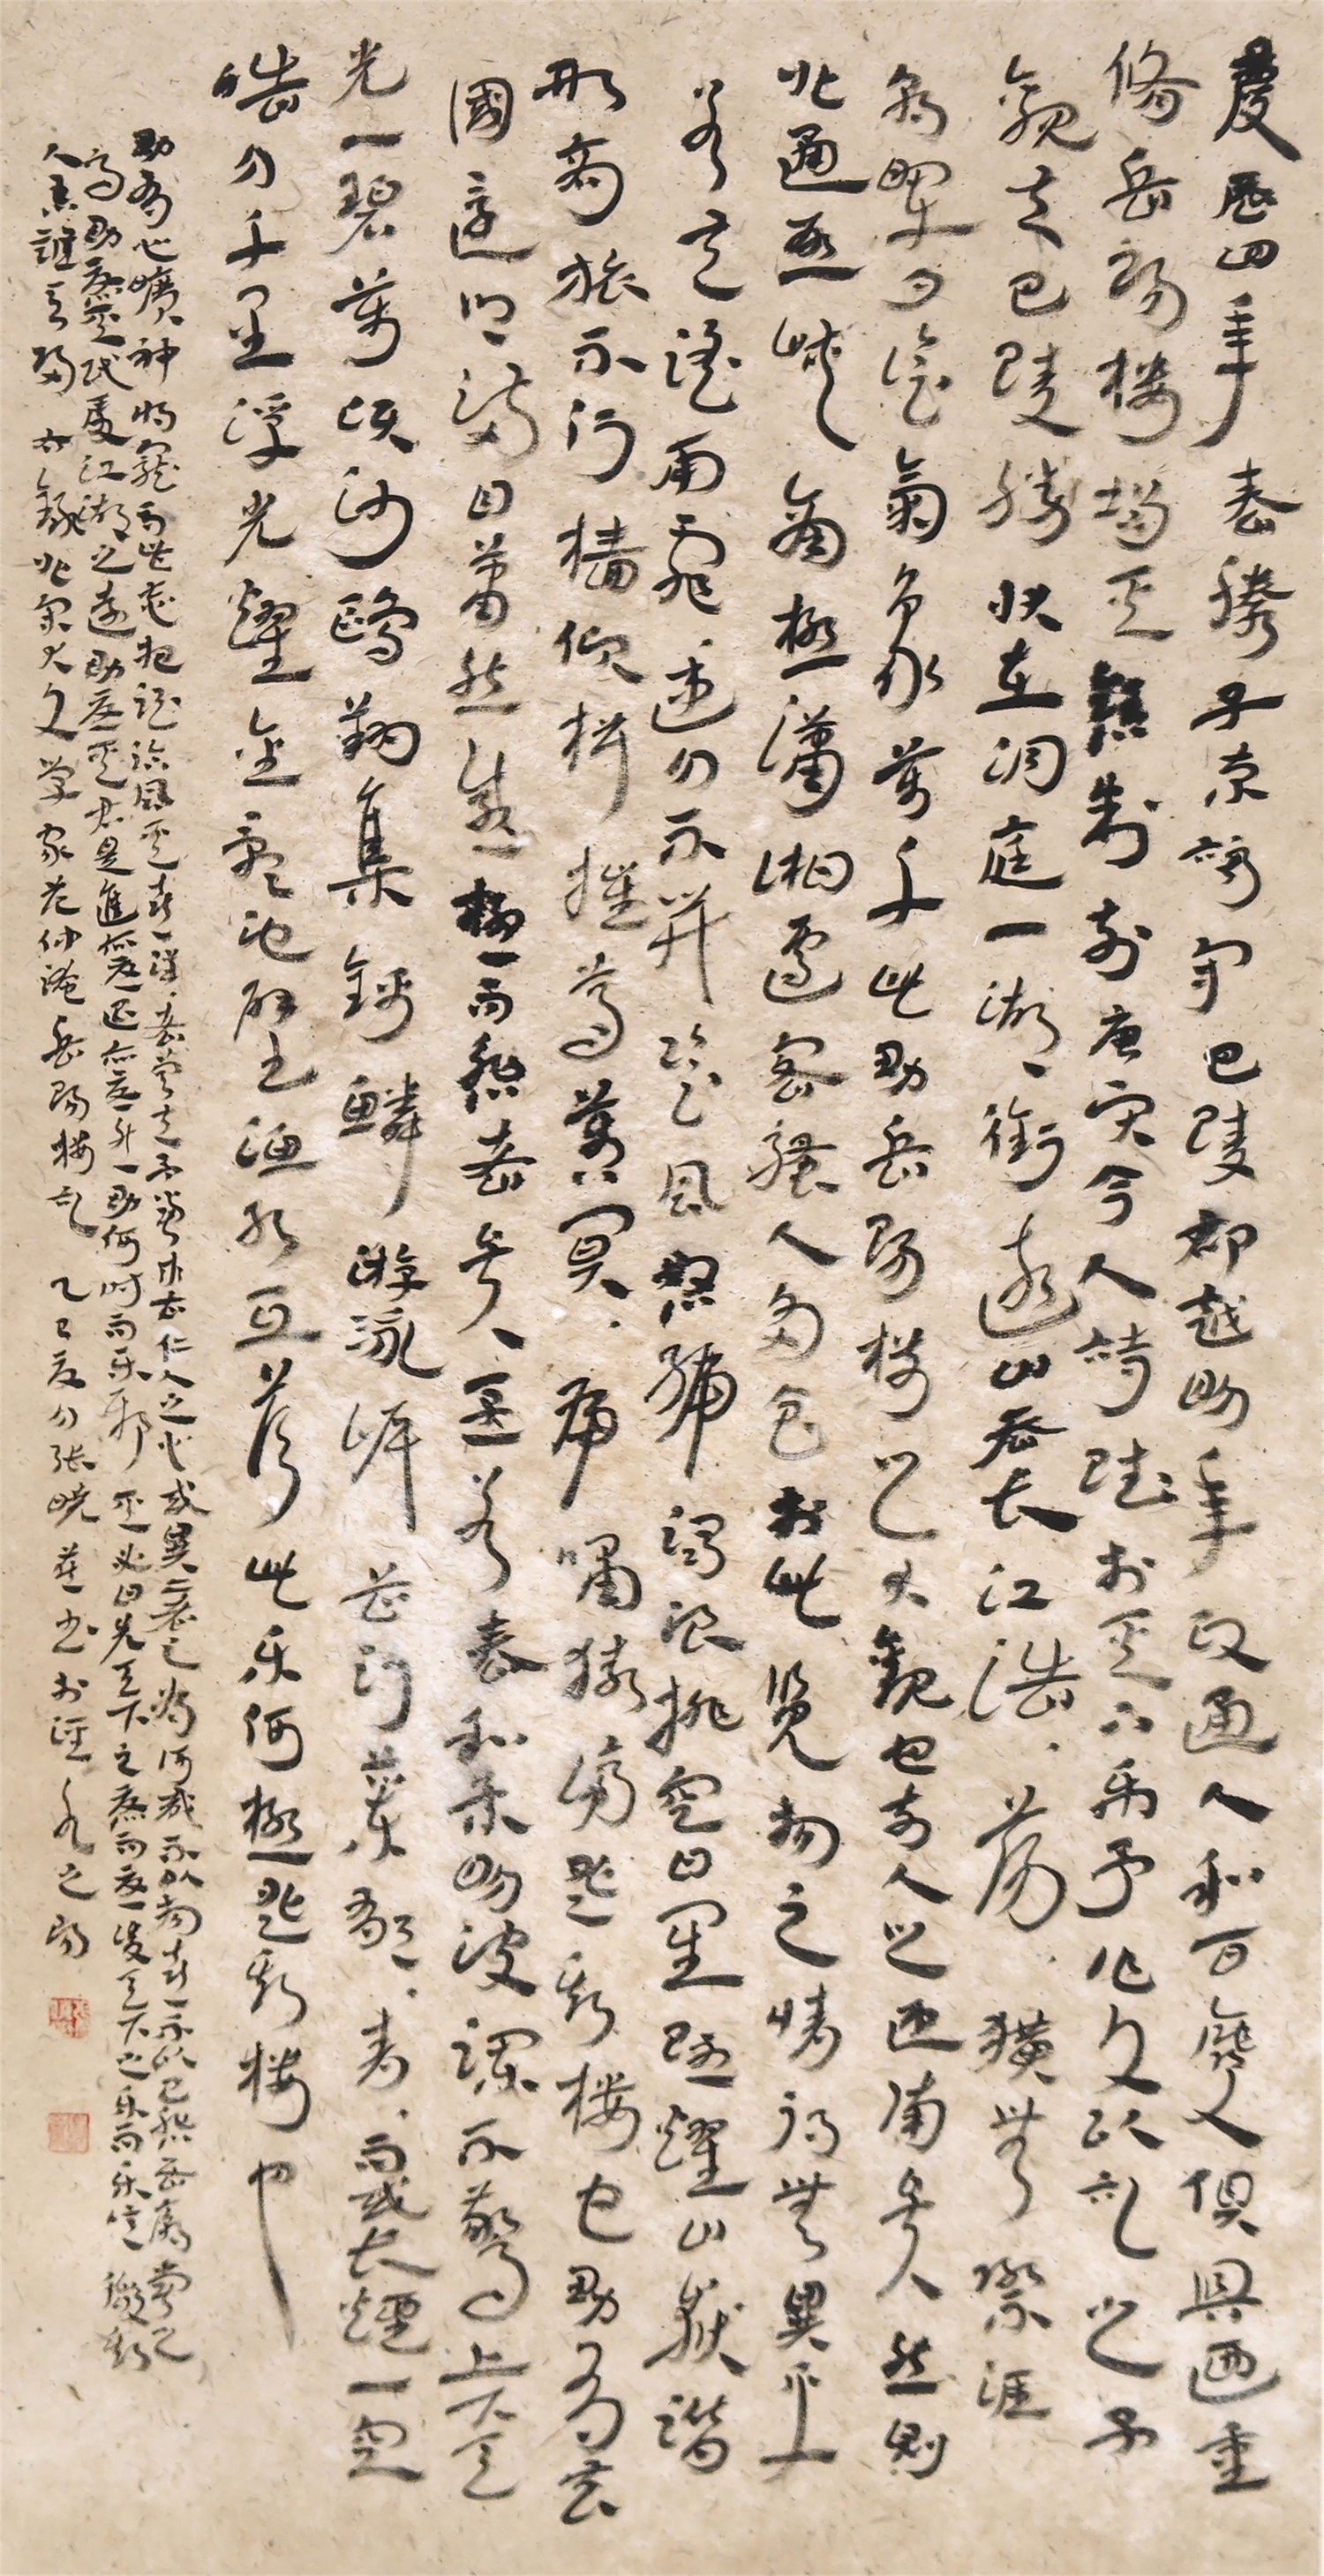 慶歷四年春滕子京謫守巴陵郡越明年政通人和百廢俱興迺重
脩岳陽樓增其舊制刻唐賢今人詩賦於其上屬予作文以記之予
觀夫巴陵勝狀在洞庭一湖銜遠山吞長江浩浩蕩蕩橫無際涯
朝暉夕陰氣象萬千此則岳陽樓之大觀也前人之述備矣然則
北通巫峽南極瀟湘遷客騷人多會於此覽物之情得無異乎
若夫霪雨霏霏連月不開陰風怒號濁浪排空日星隱耀山嶽潛
形商旅不行檣傾楫摧薄暮冥冥虎嘯猿啼登斯樓也則有去
國懷鄉滿目蕭然感極而悲者矣至若春和景明波瀾不驚上下天
光一碧萬頃沙鷗翔集錦鱗游泳岸芷汀蘭郁郁青青而或長煙一空
皓月千里浮光耀金靜影沉璧漁歌互答此樂何極登斯樓也
則有心曠神怡寵辱皆忘把酒臨風其喜洋洋者矣嗟夫予嘗求古仁人之心或異二者之為何哉不以物喜不以己悲居廟堂之
高則憂其民處江湖之遠則憂其君是進亦憂退亦憂然則何時而樂耶其必曰先天下之憂而憂後天下之樂而樂歟噫微斯
人吾誰與歸 右錄北宋大文學家范仲淹岳陽樓記 乙巳夏月張曉 書於涇水之陽